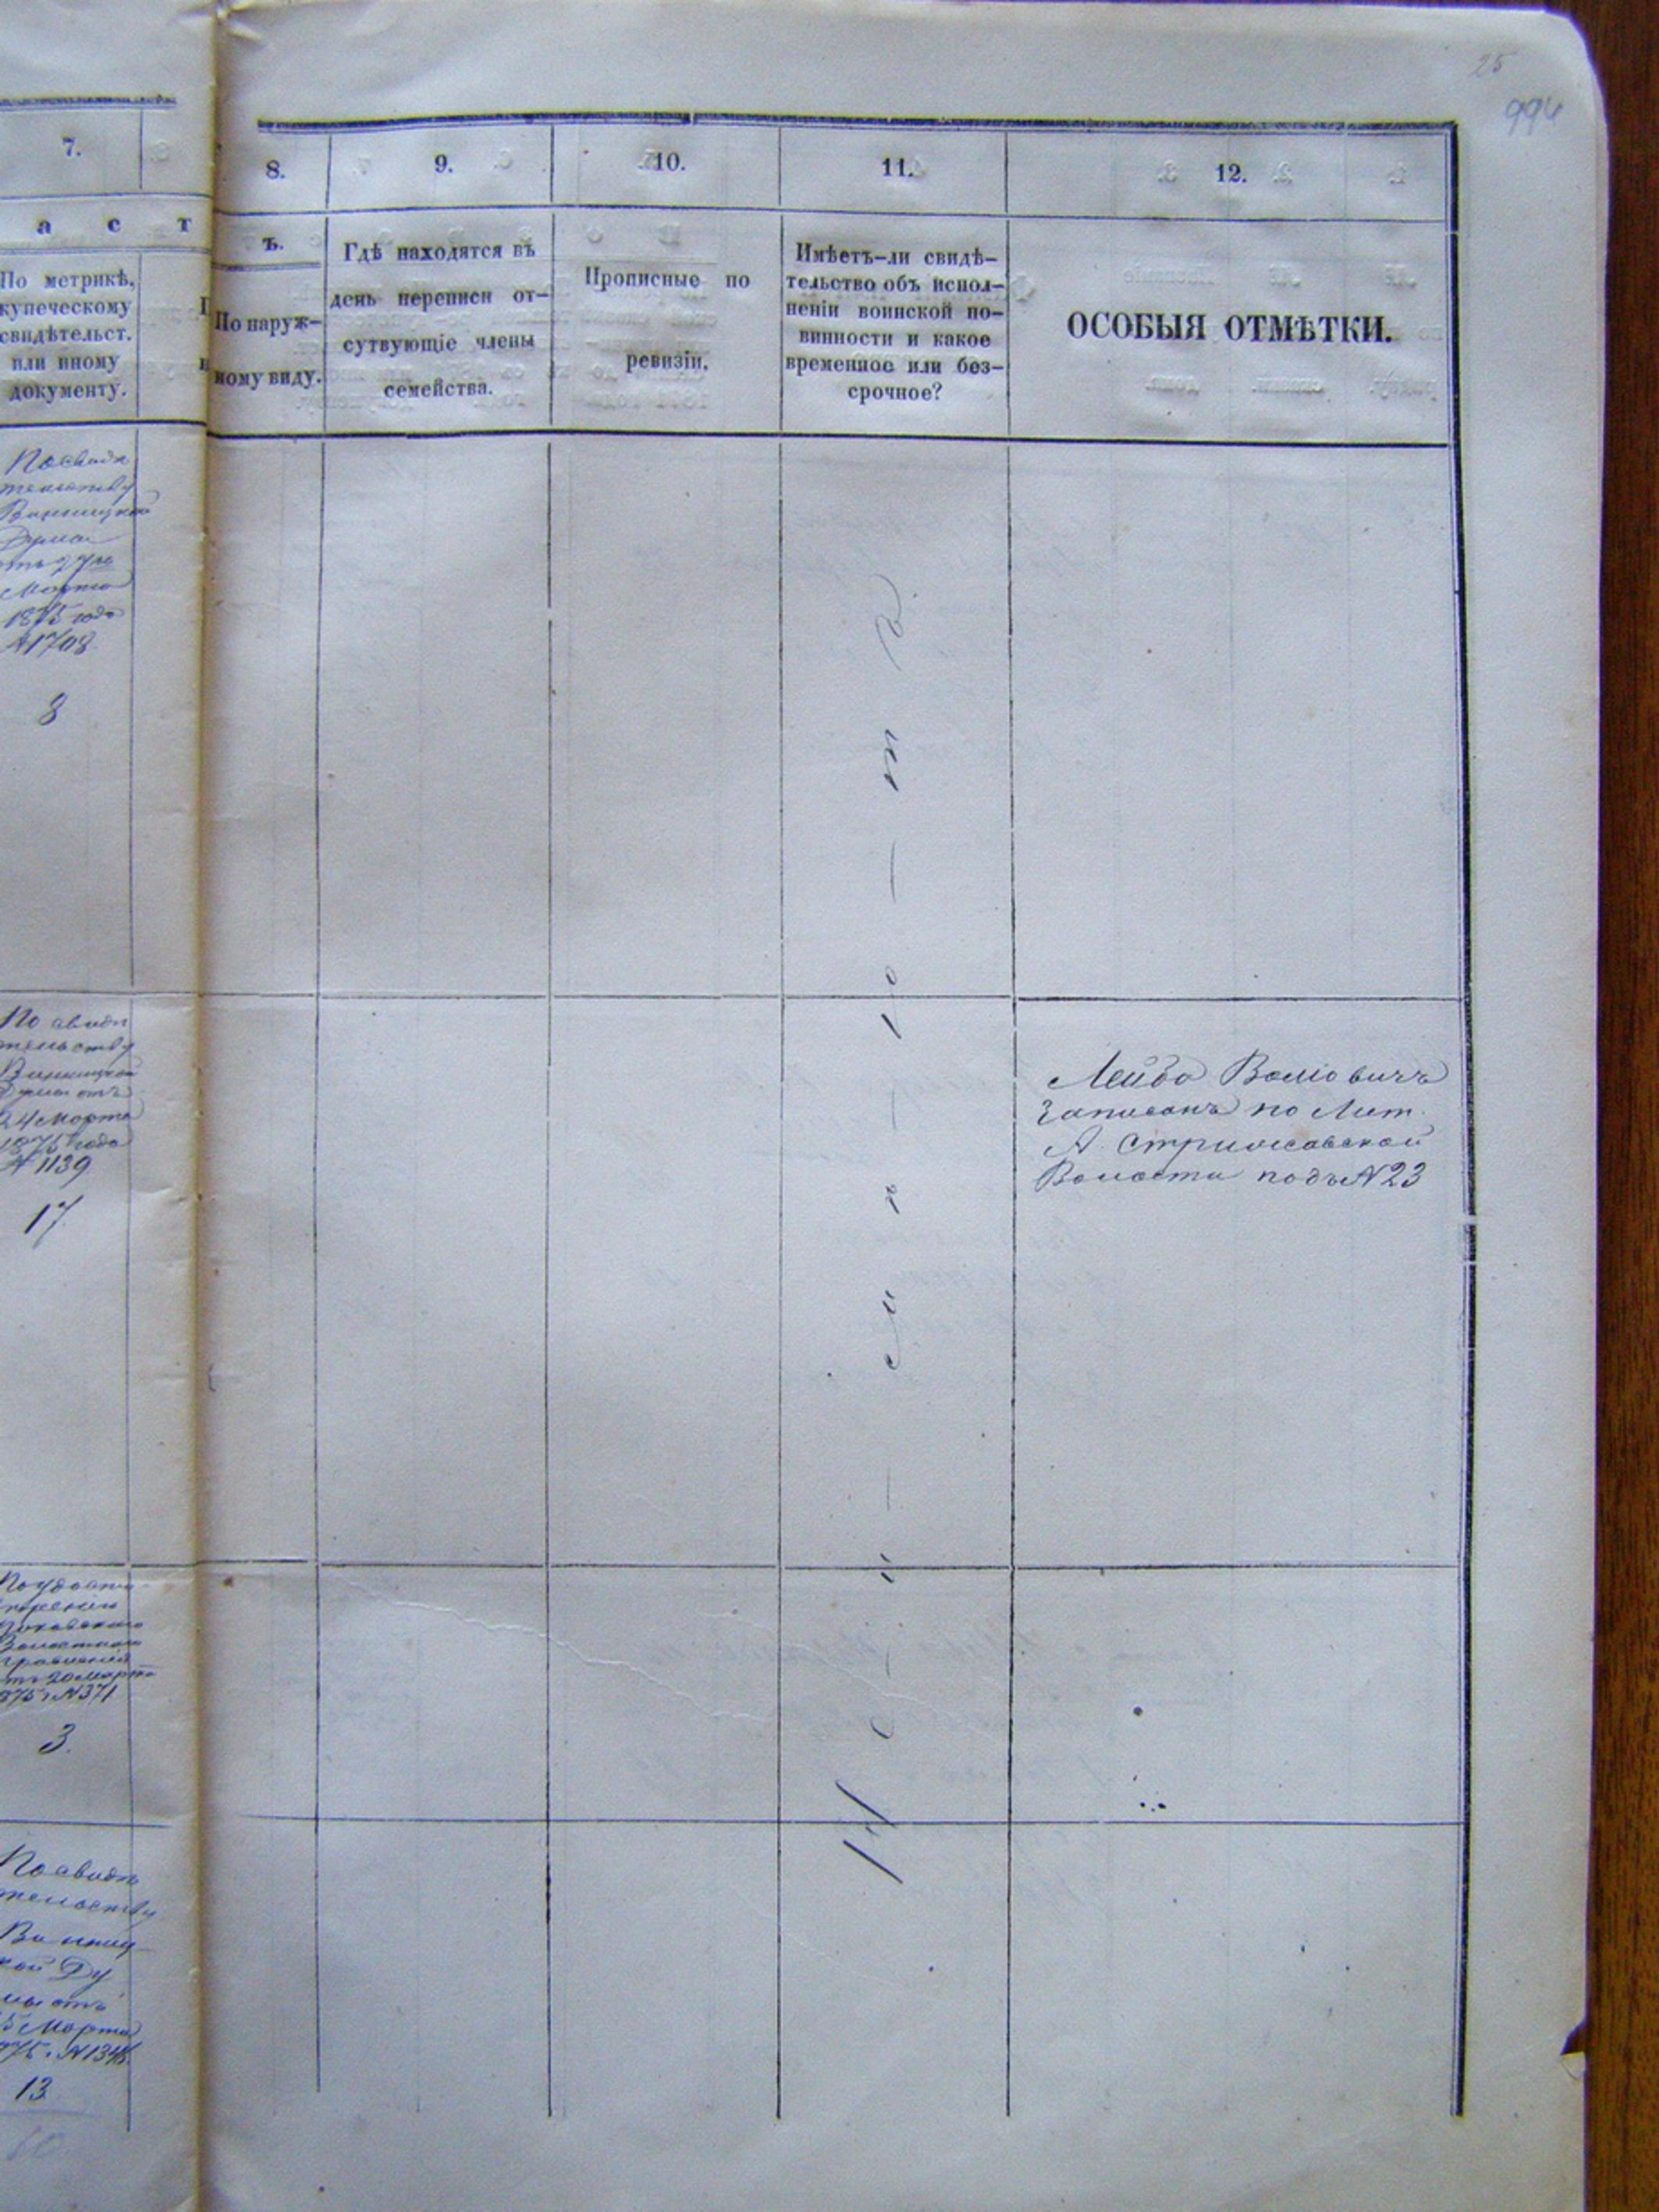 25
994
7.
8.
9.
10.
11.
12.
а с т
ъ.
По метрикѣ,
купеческому
свидѣтельст.
или иному
документу.
По наруж-
ному виду.
Гдѣ находятся въ
день переписи от-
сутвующіе члены
семейства.
Прописные по
ревизіи.
Имѣетъ-ли свидѣ-
тельство объ испол-
неніи воинской по-
винности и какое
временное или без-
срочное?
ОСОБЫЯ ОТМѢТКИ.
По свидѣ
тельству
Винницкой
Думы
Марта
1875 года
№1708
8
По свидѣ
тельству
Винницкой
Думы отъ
24 Марта
1875 года
№ 1139
17
Лейба
записанъ по Лит.
А. Стрижавской
Волости подъ №23
По удосто
веренію
Волостнаго
Правленія
20 Марта
875 г. №371
3.
По свидѣ
тельству
Винниц
кой Ду
мы отъ
5 Марта
875 г.
13